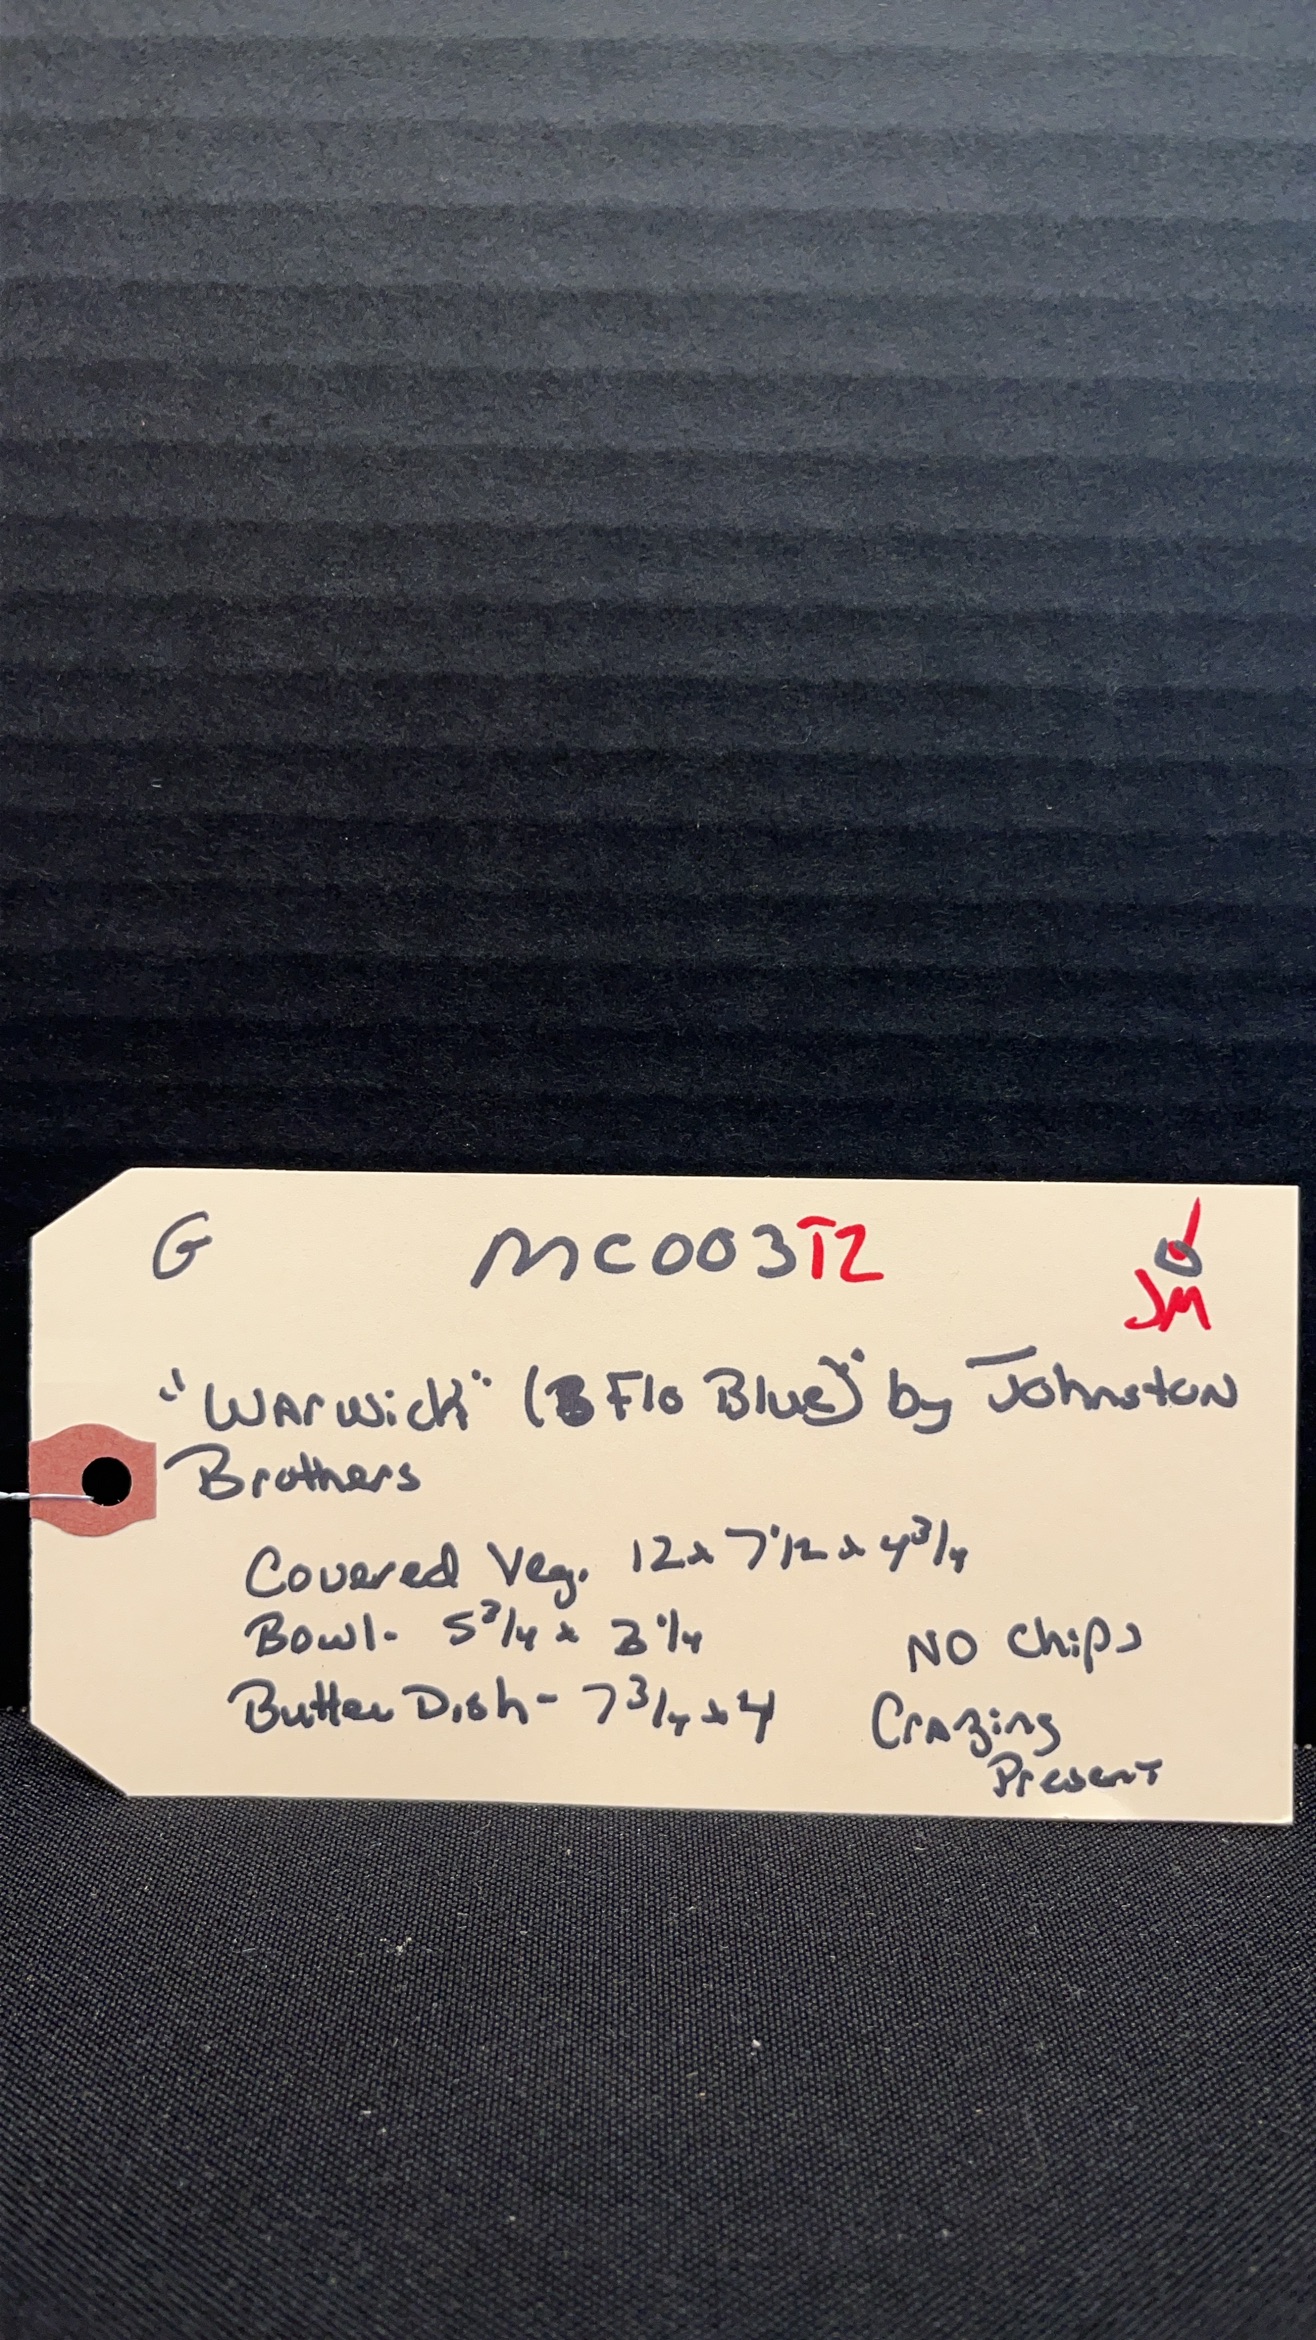 G MC003T2
JM
"Warwick" (Flo Blue) by Johnston
Brothers
Covered Veg. 12 x 7 1/2 x 4 3/4
Bowl - 5 3/4 x 3 1/4
No Chips
Butter Dish - 7 3/4 x 4
Crazing
Present